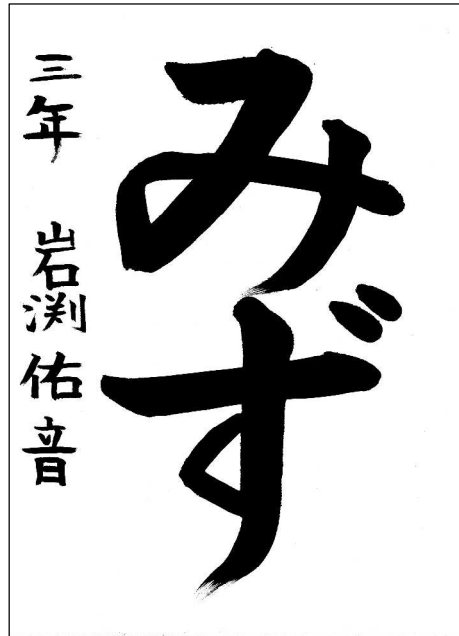 みず
三年 岩渕佑音